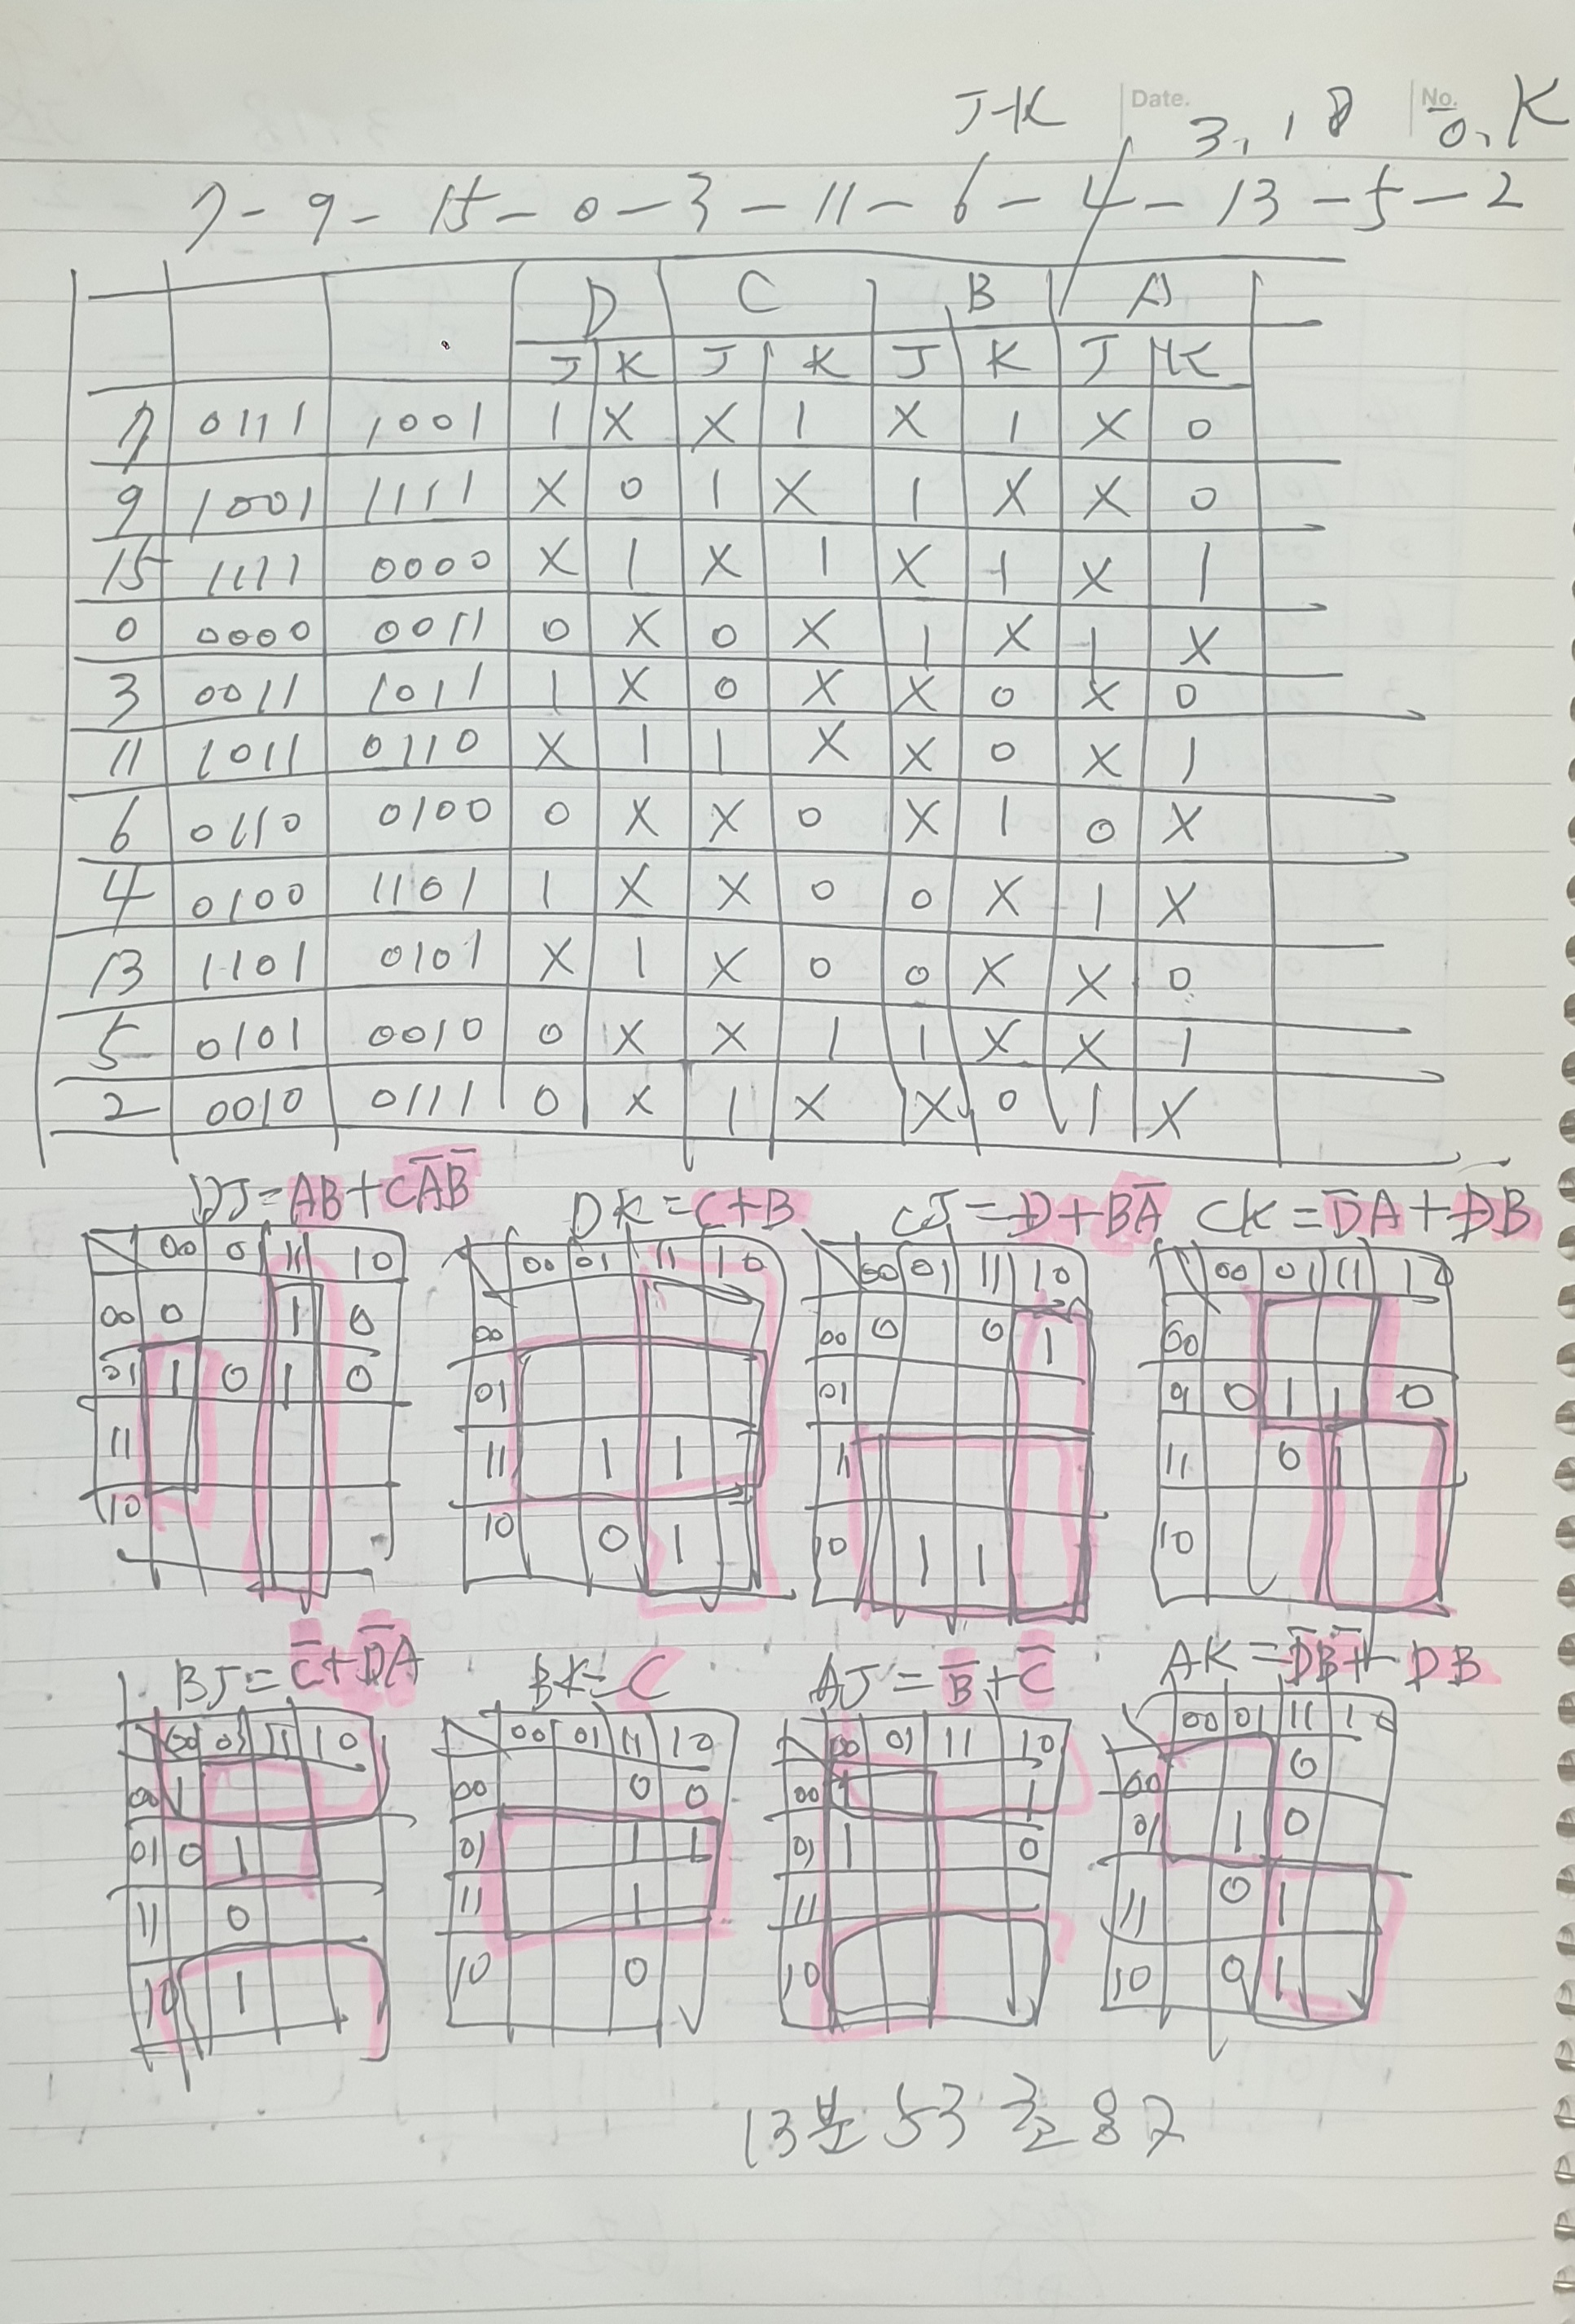 J-K Date. 3. 18 No. O.K
7 - 9 - 15 - 0 - 3 - 11 - 6 - 4 - 13 - 5 - 2
D C B A
J K J K J K J K
7 0111 1001 1 X X 1 X 1 X 0
9 1001 1111 X 0 1 X 1 X X 0
15 1111 0000 X 1 X 1 X 1 X 1
0 0000 0011 0 X 0 X 1 X 1 X
3 0011 1011 1 X 0 X X 0 X 0
11 1011 0110 X 1 1 X X 0 X 1
6 0110 0100 0 X X 0 X 1 0 X
4 0100 1101 1 X X 0 0 X 1 X
13 1101 0101 X 1 X 0 0 X X 0
5 0101 0010 0 X X 1 1 X X 1
2 0010 0111 0 X 1 X X 0 1 X
DJ = AB + CA̅B̅
00 01 11 10
00 0 1 0
01 1 0 1 0
11
10
DK = C + B
00 01 11 10
00
01
11 1 1
10 0 1
CJ = D + BA̅
00 01 11 10
00 0 0 1
01
11
10 1 1
CK = D̅A + DB
00 01 11 10
00
01 0 1 1 0
11 0 1
10
BJ = C̅ + D̅A
00 01 11 10
00 1
01 0 1
11 0
10 1
BK = C
00 01 11 10
00 0 0
01 1 1
11 1
10 0
AJ = B̅ + C̅
00 01 11 10
00 1 1
01 1 0
11
10
AK = D̅B̅ + DB
00 01 11 10
00 0
01 1 0
11 0 1
10 0 1
13분 53초 87